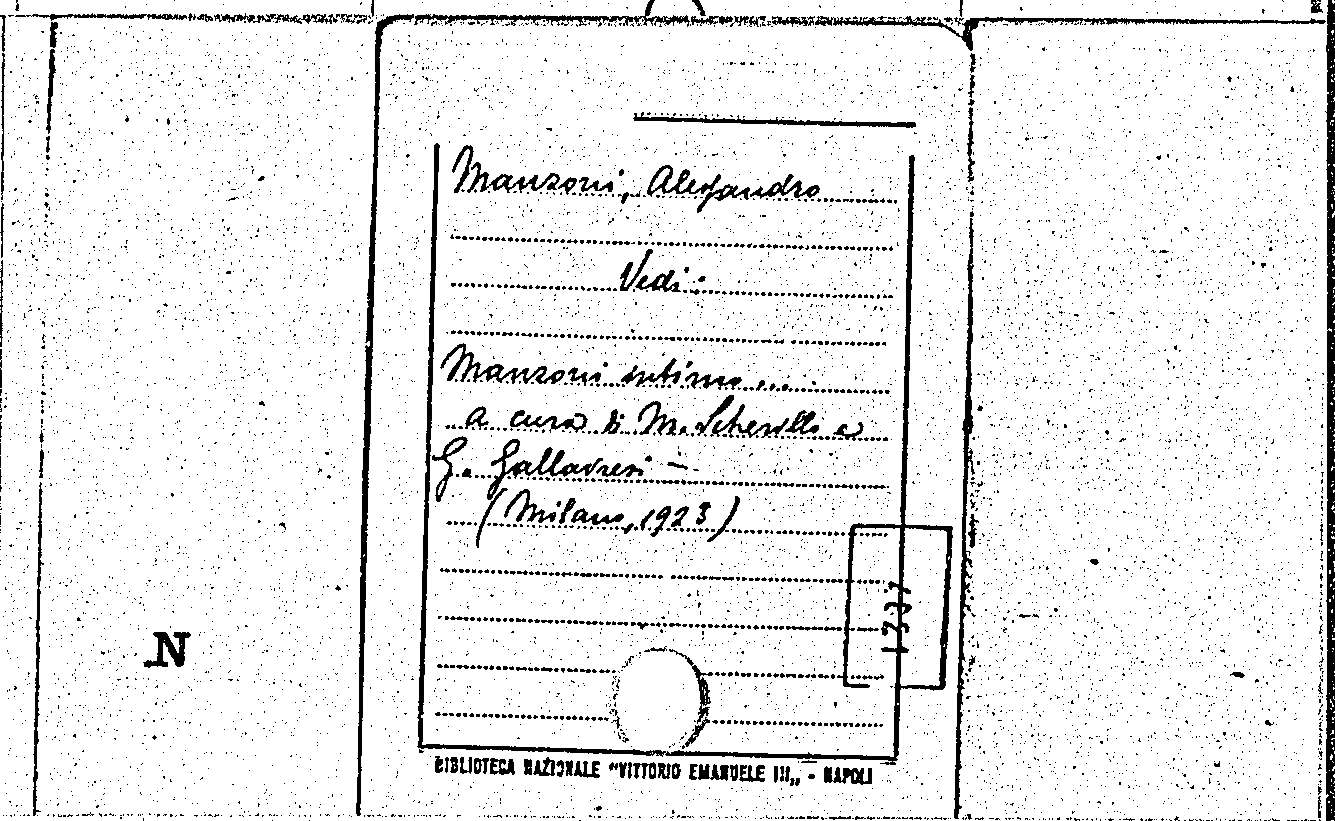 Manzoni, Alessandro
Vedi:
Manzoni intimo...
a cura di M. Scherillo e
G. Gallavresi –
(Milano, 1923)
1337
N
BIBLIOTECA NAZIONALE "VITTORIO EMANUELE III„ - NAPOLI